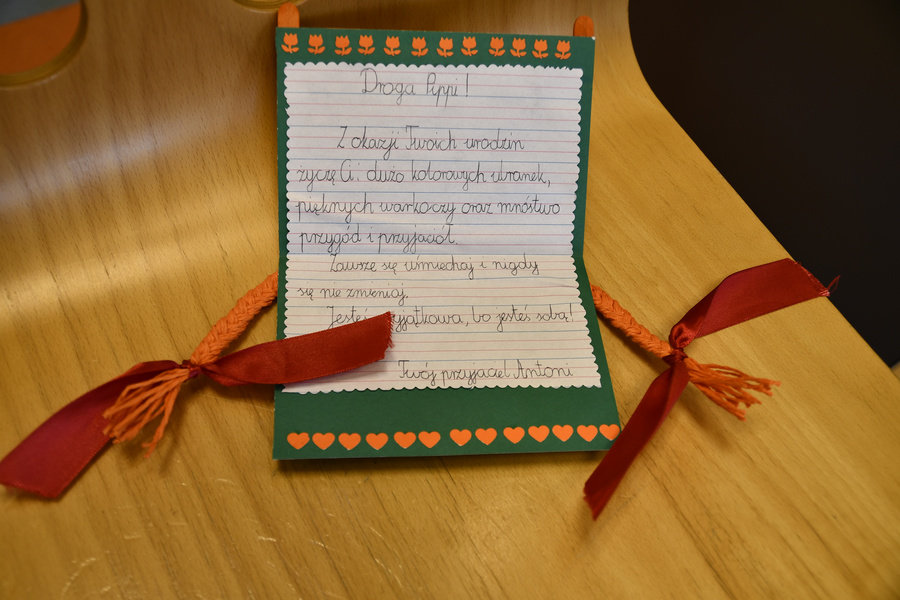 Droga Pippi!
Z okazji Twoich urodzin
życzę Ci: dużo kolorowych ubranek,
pięknych warkoczy oraz mnóstwo
przygód i przyjaciół.
Zawsze się uśmiechaj i nigdy
się nie zmieniaj.
Jesteś bo jesteś sobą!
Twój przyjaciel Antoni